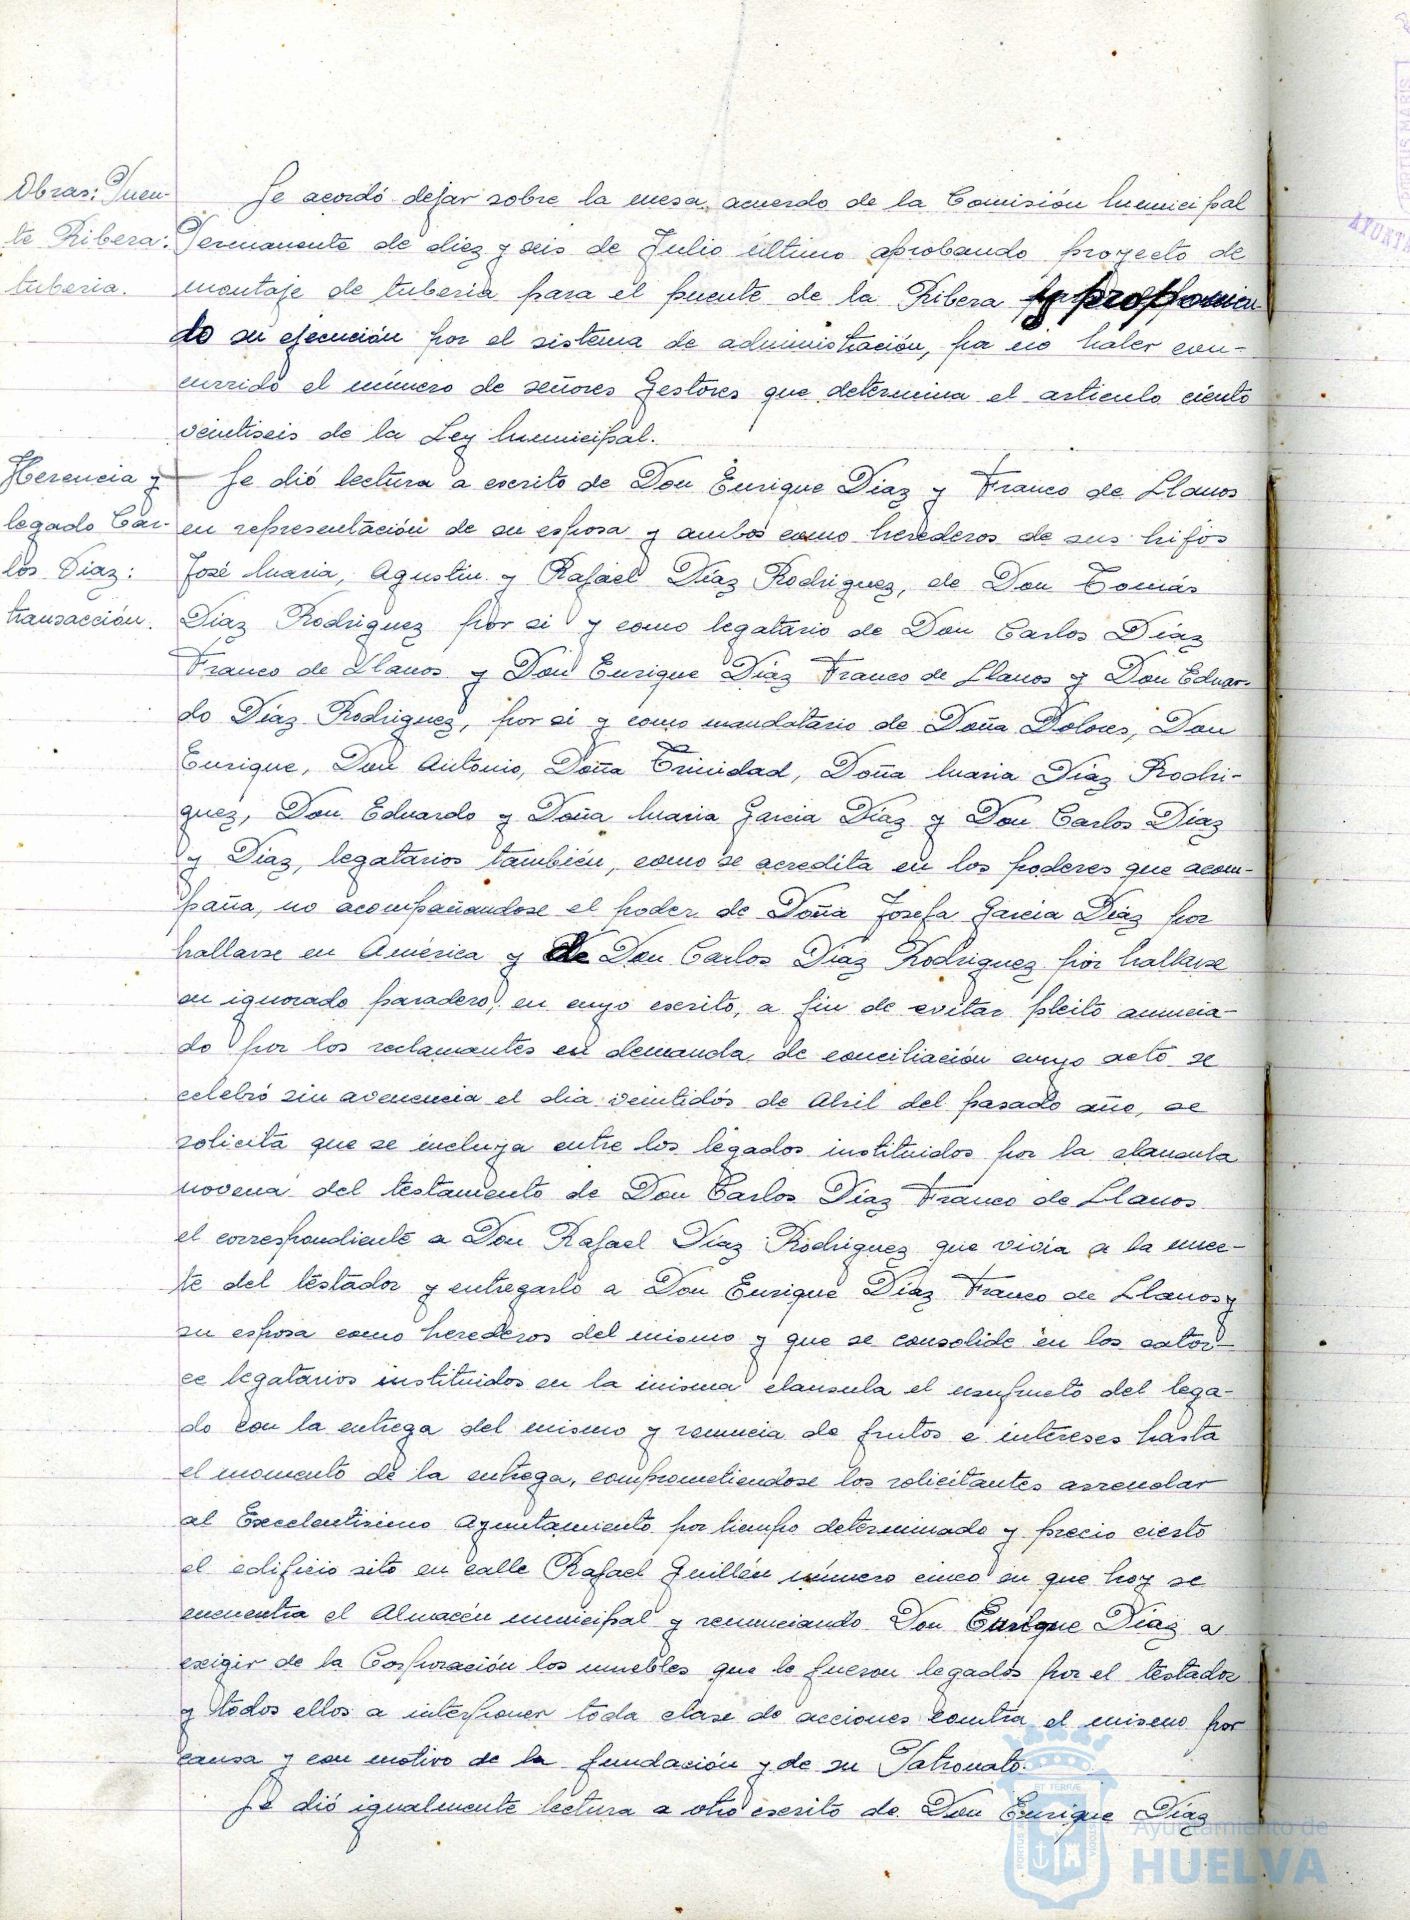 Obras: Puen-
te Ribera:
tuberia.
Se acordó dejar sobre la mesa, acuerdo de la Comisión Municipal
Permanente de diez y seis de Julio último aprobando proyecto de
montaje de tuberia para el puente de la Ribera y proponien-
do su ejecución por el sistema de administración, pa no haber con-
currido el número de señores Gestores que determina el articulo ciento
veintiseis de la Ley Municipal.
Herencia y
legado Car-
los Diaz:
transacción.
Se dió lectura a escrito de Don Enrique Diaz y Franco de Llanos
en representación de su esposa y ambos como herederos de sus hijos
José Maria, Agustin y Rafael Díaz Rodriguez, de Don Tomás
Diaz Rodriguez por si y como legatario de Don Carlos Díaz
Franco de Llanos y Don Enrique Díaz Franco de Llanos y Don Eduar-
do Díaz Rodriguez, por si y como mandatario de Doña Dolores, Don
Enrique, Don Antonio, Doña Trinidad, Doña Maria Díaz Rodri-
guez, Don Eduardo y Doña Maria Garcia Díaz y Don Carlos Díaz
y Diaz, legatarios también, como se acredita en los poderes que acom-
paña, no acompañandose el poder de Doña Josefa Garcia Díaz por
hallarse en América y de Don Carlos Díaz Rodriguez por hallarse
en ignorado paradero, en cuyo escrito, a fin de evitar pleito anuncia-
do por los reclamantes en demanda de conciliación cuyo acto se
celebró sin avenencia el dia veintidós de Abril del pasado año, se
solicita que se incluya entre los legados instituidos por la clausula
novena del testamento de Don Carlos Díaz Franco de Llanos
el correspondiente a Don Rafael Diaz Rodriguez que vivia a la muer-
te del testador y entregarlo a Don Enrique Díaz Franco de Llanos y
su esposa como herederos del mismo y que se consolide en los cator-
ce legatarios instituidos en la misma clausula el usufructo del lega-
do con la entrega del mismo y renuncia de frutos e intereses hasta
el momento de la entrega, comprometiendose los solicitantes arrendar
al Excelentisimo Ayuntamiento por tiempo determinado y precio cierto
el edificio sito en calle Rafael Guillén número cinco en que hoy se
encuentra el Almacén municipal y renunciando Don Enrique Díaz a
exigir de la Corporación los muebles que le fueron legados por el testador
y todos ellos a interponer toda clase de acciones contra el mismo por
causa y con motivo de la fundación y de su Patronato.
Se dió igualmente lectura a otro escrito de Don Enrique Díaz
Ayuntamiento de
HUELVA